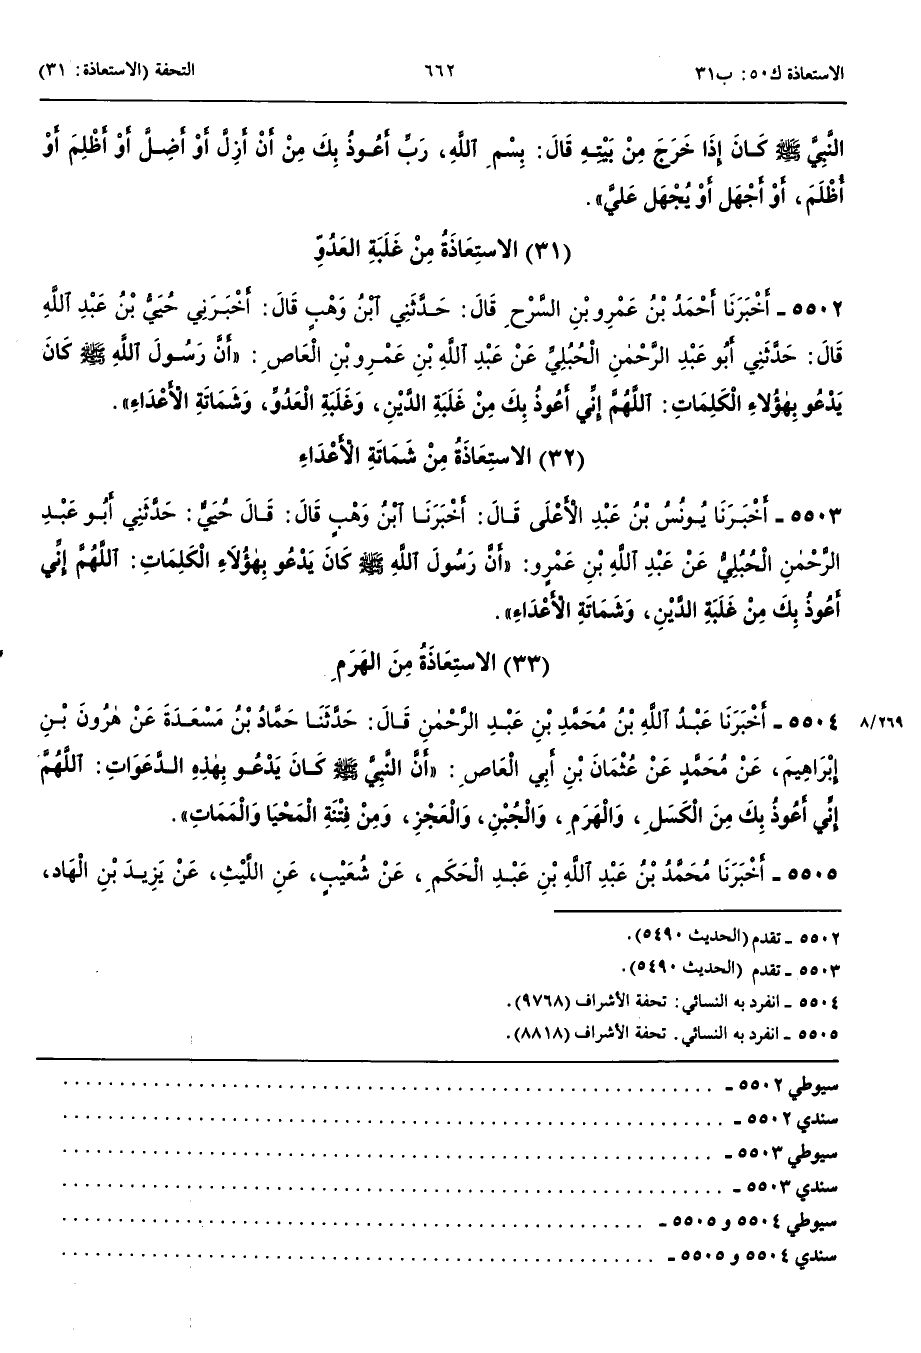 الاستعاذة ك٥٠: ب٣١ ٦٦٢ التحفة (الاستعاذة: ٣١)
النَّبِيَّ ﷺ كَانَ إِذَا خَرَجَ مِنْ بَيْتِهِ قَالَ: بِسْمِ ٱللَّهِ، رَبِّ أَعُوذُ بِكَ مِنْ أَنْ أَزِلَّ أَوْ أَضِلَّ أَوْ أَظْلِمَ أَوْ
أُظْلَمَ، أَوْ أَجْهَل أَوْ يُجْهَل عَليَّ».
(٣١) الاستِعَاذَةُ مِنْ غَلَبَةِ العَدُوِّ
٥٥٠٢ ـ أَخْبَرَنَا أَحْمَدُ بْنُ عَمْرِو بْنِ السَّرْحِ قَالَ: حَدَّثَنِي ٱبْنُ وَهْبٍ قَالَ: أَخْبَرَنِي حُيَيُّ بْنُ عَبْدِ ٱللَّهِ
قَالَ: حَدَّثَنِي أَبُو عَبْدِ الرَّحْمٰنِ الْحُبُلِيُّ عَنْ عَبْدِ ٱللَّهِ بْنِ عَمْرِو بْنِ الْعَاصِ: «أَنَّ رَسُولَ ٱللَّهِ ﷺ كَانَ
يَدْعُو بِهٰؤُلاءِ الْكَلِمَاتِ: ٱللَّهُمَّ إِنِّي أَعُوذُ بِكَ مِنْ غَلَبَةِ الدَّيْنِ، وَغَلَبَةِ الْعَدُوِّ، وَشَمَاتَةِ الْأَعْدَاءِ».
(٣٢) الاستِعَاذَةُ مِنْ شَمَاتَةِ الْأَعْدَاءِ
٥٥٠٣ ـ أَخْبَرَنَا يُونُسُ بْنُ عَبْدِ الْأَعْلَى قَالَ: أَخْبَرَنَا ٱبْنُ وَهْبٍ قَالَ: قَالَ حُيَيُّ: حَدَّثَنِي أَبُو عَبْدِ
الرَّحْمٰنِ الْحُبُلِيُّ عَنْ عَبْدِ ٱللَّهِ بْنِ عَمْرٍو: «أَنَّ رَسُولَ ٱللَّهِ ﷺ كَانَ يَدْعُو بِهٰؤُلَاءِ الْكَلِمَاتِ: ٱللَّهُمَّ إِنِّي
أَعُوذُ بِكَ مِنْ غَلَبَةِ الدَّيْنِ، وَشَمَاتَةِ الْأَعْدَاءِ».
(٣٣) الاستِعَاذَةُ مِنَ الهَرَمِ
٥٥٠٤ ـ أَخْبَرَنَا عَبْدُ ٱللَّهِ بْنُ مُحَمَّدِ بْنِ عَبْدِ الرَّحْمٰنِ قَالَ: حَدَّثَنَا حَمَّادُ بْنُ مَسْعَدَةَ عَنْ هٰرُونَ بْنِ
٨/٢٦٩
إِبْرَاهِيمَ، عَنْ مُحَمَّدٍ عَنْ عُثْمَانَ بْنِ أَبِي الْعَاصِ: «أَنَّ النَّبِيَّ ﷺ كَانَ يَدْعُو بِهٰذِهِ الدَّعَوَاتِ: ٱللَّهُمَّ
إِنِّي أَعُوذُ بِكَ مِنَ الْكَسَلِ، وَالْهَرَمِ، وَالْجُبْنِ، وَالْعَجْزِ، وَمِنْ فِتْنَةِ الْمَحْيَا وَالْمَمَاتِ».
٥٥٠٥ ـ أَخْبَرَنَا مُحَمَّدُ بْنُ عَبْدِ ٱللَّهِ بْنِ عَبْدِ الْحَكَمِ، عَنْ شُعَيْبٍ، عَنِ اللَّيْثِ، عَنْ يَزِيدَ بْنِ الْهَادِ،
٥٥٠٢ ـ تقدم (الحديث ٥٤٩٠).
٥٥٠٣ ـ تقدم (الحديث ٥٤٩٠).
٥٥٠٤ ـ انفرد به النسائي: تحفة الأشراف (٩٧٦٨).
٥٥٠٥ ـ انفرد به النسائي. تحفة الأشراف (٨٨١٨).
سيوطي ٥٥٠٢ ـ ..........
سندي ٥٥٠٢ ـ ..........
سيوطي ٥٥٠٣ ـ ..........
سندي ٥٥٠٣ ـ ..........
سيوطي ٥٥٠٤ و ٥٥٠٥ ـ ..........
سندي ٥٥٠٤ و ٥٥٠٥ ـ ..........